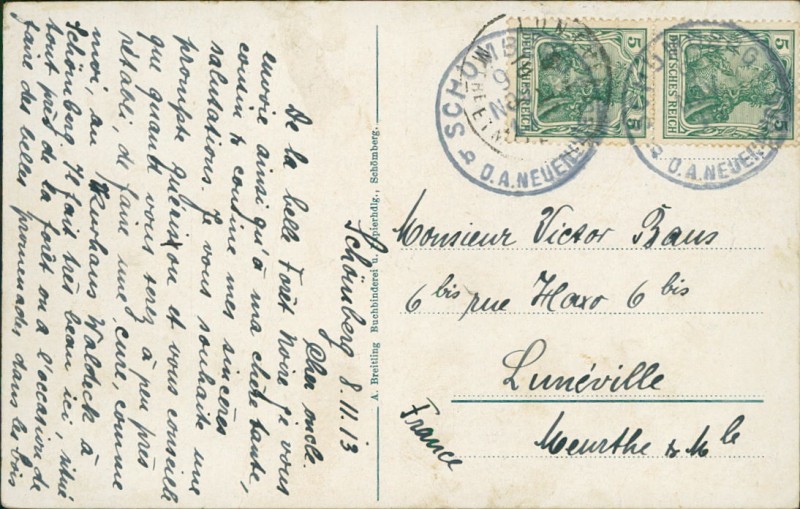 Schömberg 8.11.13
Cher oncle.
De la belle Forêt Noire je vous
envoie ainsi qu'à ma chère tante,
cousin & cousine mes sincères
salutations. Je vous souhaite une
prompte guérison et vous conseille
que quand vous serez à peu près
rétabli, de faire une cure, comme
moi, au Kurhaus Waldeck à
Schömberg. Il fait très beau ici, situé
tout près de la forêt on a l'occasion de
faire des belles promenades dans les bois
A. Breitling Buchbinderei u. Papierhdlg., Schömberg.
5 5
DEUTSCHES REICH
5 5
DEUTSCHES REICH
SCHÖMBERG
O.A. NEUENB
SCHÖMBERG
O.A. NEUENB
LUNEVILLE
Monsieur Victor Baus
6 bis rue Haxo 6 bis
Lunéville
Meurthe & Mlle
France